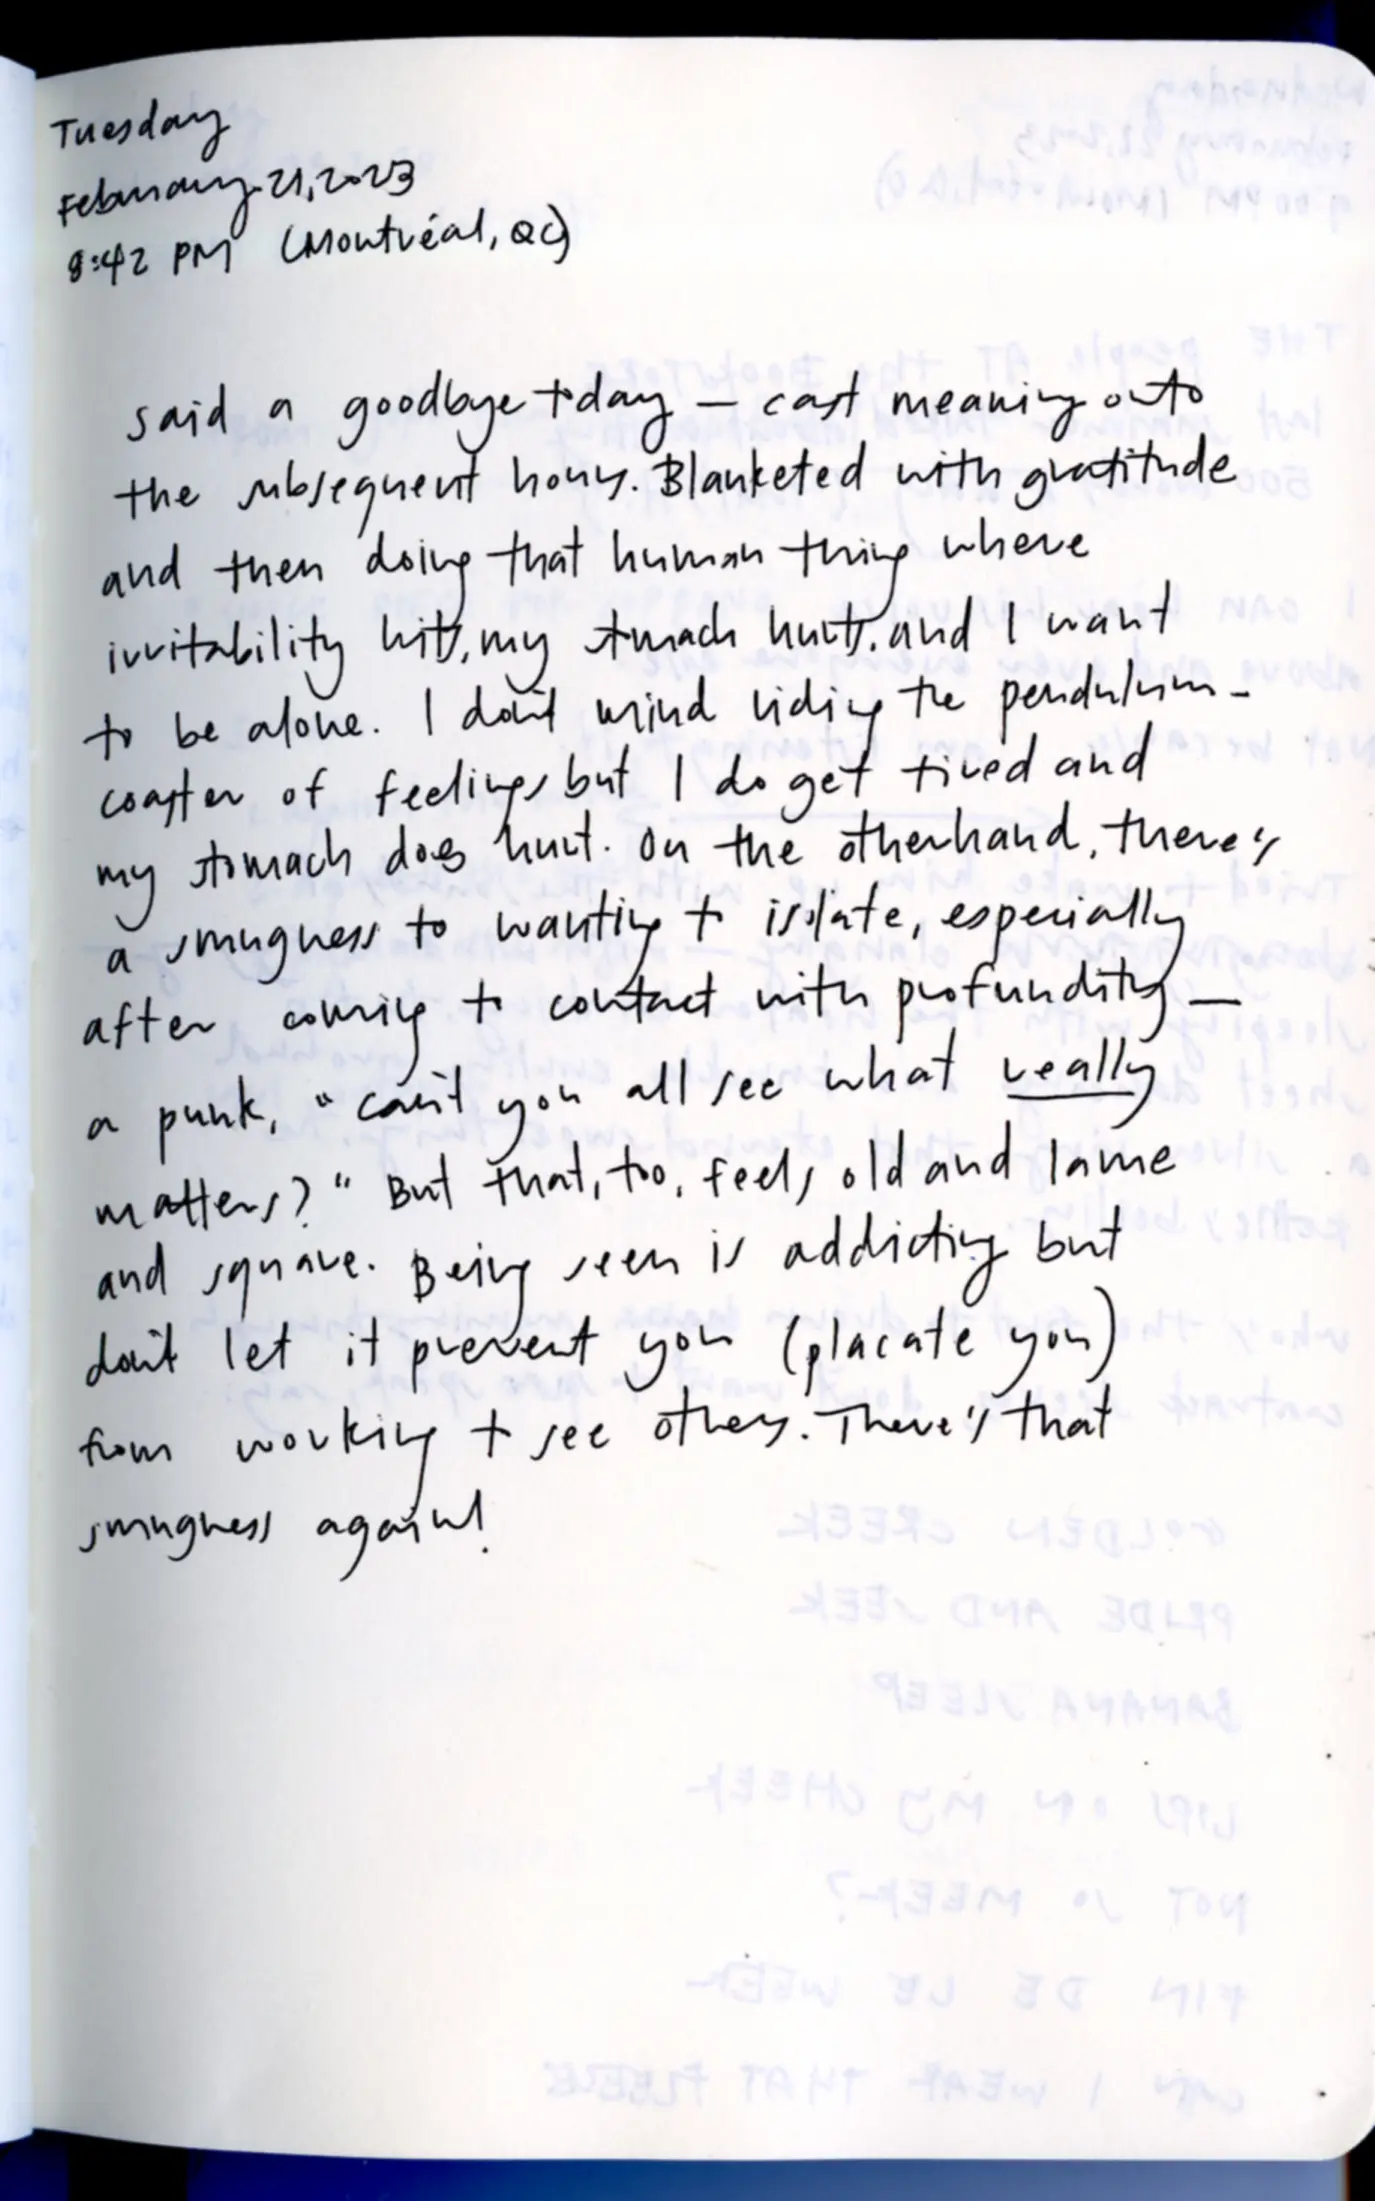 Tuesday
February 21, 2023
8:42 PM (Montréal, QC)
said a goodbye today — cast meaning onto
the subsequent hours. Blanketed with gratitude
and then doing that human thing where
irritability hits, my stomach hurts, and I want
to be alone. I don't mind riding the pendulum-
coaster of feelings but I do get tired and
my stomach does hurt. On the otherhand, there's
a smugness to wanting to isolate, especially
after coming to contact with profundity —
a punk, "can't you all see what really
matters?" But that, too, feels old and lame
and square. Being seen is addicting but
don't let it prevent you (placate you)
from working to see others. There's that
smugness again!